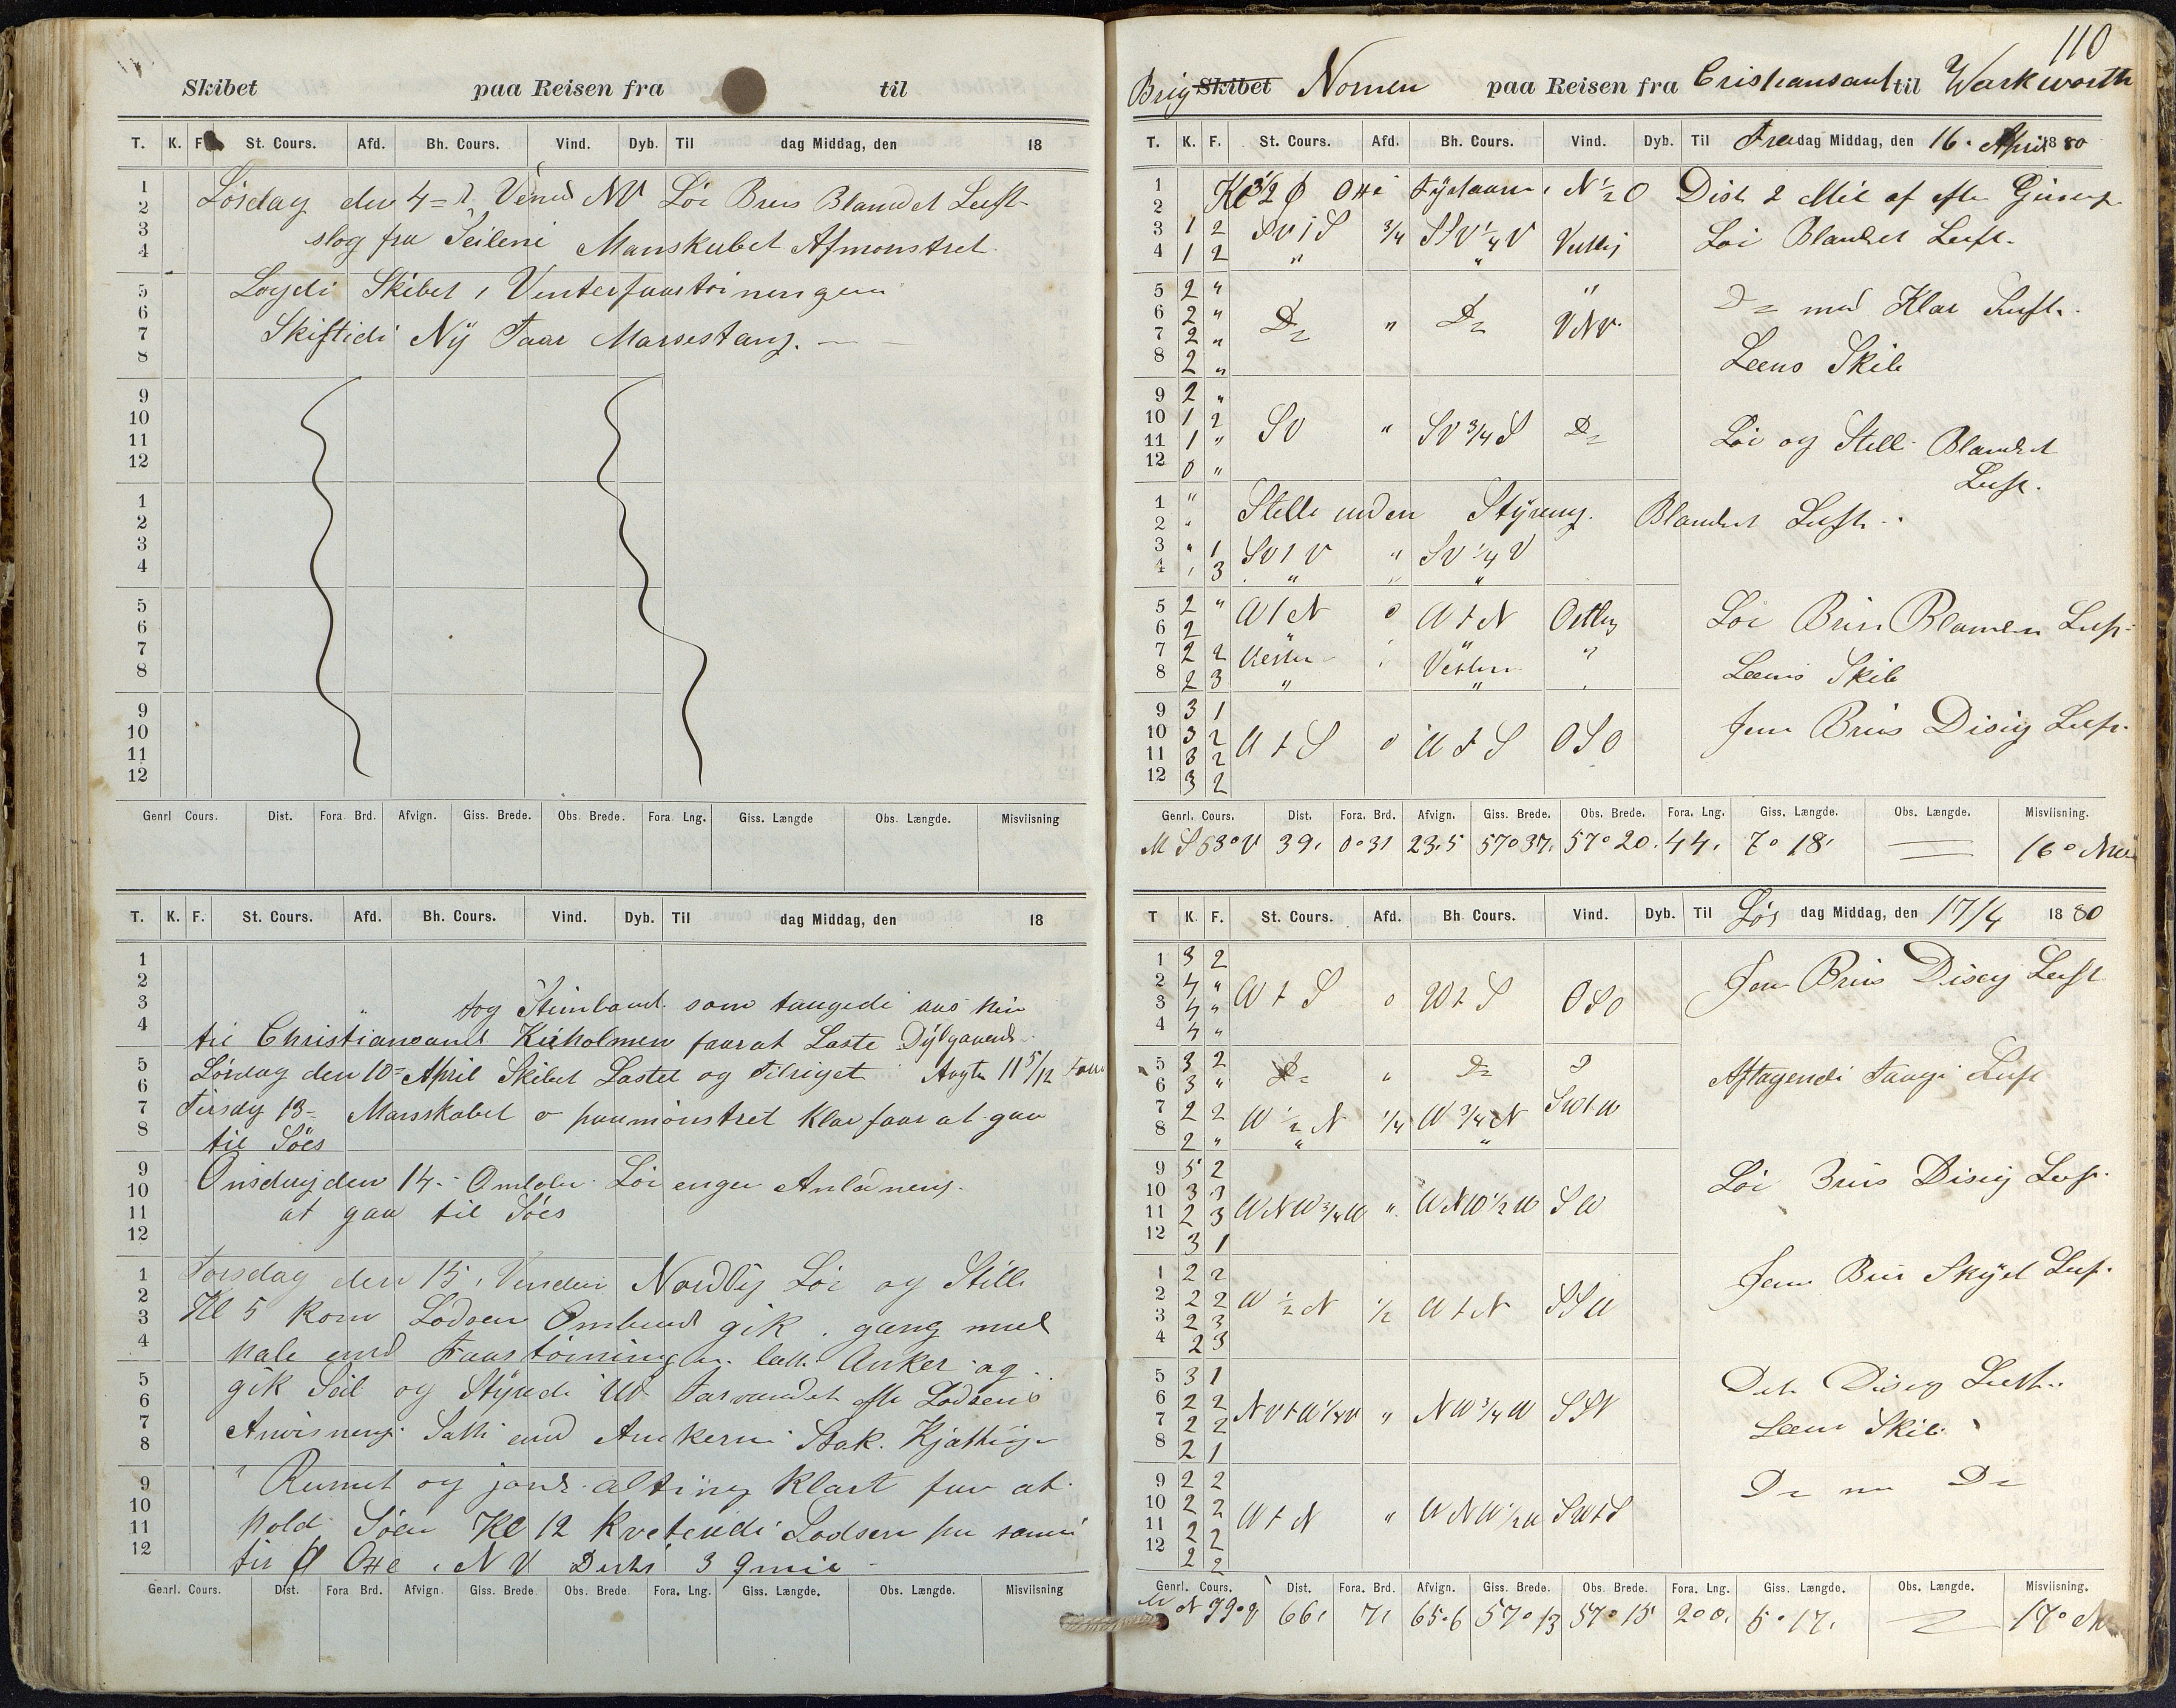 Skibet paa Reisen fra til
T. K. F. St. Cours. Afd. Bh. Cours. Vind. Dyb. Til dag Middag, den 18
1 Lösdag den 4= Vind NV Löi Bris Blandet Luft
2 slog fra Seilene Manskabet Afmonstret
3
4
5 Lagde Skibet i Vinterfaartöiningen
6 Skiftede Ny Faar Marsestang.
7
8
9
10
11
12
1
2
3
4
5
6
7
8
9
10
11
12
Genrl Cours. Dist. Fora Brd. Afvign. Giss. Brede. Obs. Brede. Fora. Lng. Giss. Længde Obs. Længde. Misviisning
T. K. F. St. Cours. Afd. Bh. Cours. Vind. Dyb. Til dag Middag, den 18
1
2
3 tog som
4 til Christiansand Kirholmen faar at Laste
5 Lördag den 10= April Skibet Lastet og Tilriget Agter 11 5/12
6
7 Tirsdag 13= Mansskabet paamönstret Klar faar at gaa
8 til Söes
9 Onsdag den 14. Löi
10 at gaa til Söes
11
12
1 Torsdag den 15, Vinden Nordlig Löi og Stille
2 Kl 5 kom Lodsen Ombord gik i gang med
3 hale ind Faartöiningen. Anker og
4
5 gik Seil og Styrede Ud Farvandet efter Lodsens
6
7 Anvisning. Satte ind Ankerne Stak. Kjætting
8
9 i Rumet og jorde alting klart for at
10
11 holde Söen Kl 12 kvitende Lodsen
12 i NV Dists 3
Genrl. Cours. Dist. Fora Brd. Afvign. Giss. Brede Obs. Brede Fora. Lng. Giss. Længde. Obs. Længde. Misviisning
110
Brig Skibet Nornen paa Reisen fra Cristiansand til Warkworth
T. K. F. St. Cours. Afd. Bh. Cours. Vind. Dyb. Til Fredag Middag, den 16. April 1880
1 Kl 3 1/2 i N 1/2 O Dist 2 Mil af
2
3 1 2 SV t S 3/4 SSV 1/4 V Vestlig Löi Blandet Luft.
4 1 2 " "
5 2 " "
6 2 " Do " Do VNV Do med Klar Luft.
7 2 "
8 2 " Lens Skib
9 2 "
10 1 2 SV " SV 3/4 S Do Löi og Stille Blandet
11 1 " Luft.
12 0 "
1 " Stille uden Styring. Blandet Luft
2 "
3 " 1 SV t V " SV 1/4 V
4 1 3 " " "
5 2 " W t N 0 W t N Ostlig Löi Bris Blandet Luft
6 2 " "
7 2 2 Vesten Vesten " Lens Skib
8 2 3 " "
9 3 1
10 3 2 W t S 0 W t S OSO Jevn Bris Disig Luft.
11 3 2
12 3 2
Genrl. Cours. Dist. Fora. Brd. Afvign. Giss. Brede. Obs. Brede. Fora. Lng. Giss. Længde. Obs. Længde. Misviisning.
M S 53° V 39, 0°31 23,5 57°37, 57°20. 44, 7°18, 16°
T K. F. St. Cours. Afd. Bh. Cours. Vind. Dyb. Til Lös dag Middag, den 17/4 1880
1 3 2
2 4 " W t S 0 W t S OSO Jevn Bris Disig Luft
3 4 "
4 4 "
5 3 2 Do " Do Aftagende Taage Luft
6 3 "
7 2 2 W 1/2 N 1/4 W 3/4 N SW t W
8 2 " " "
9 5 2
10 3 3 Löi Bris Disig Luft.
11 2 3 WNW 3/4 W " WNW 1/2 W SW
12 3 1
1 2 2 Jevn Bris Skyet Luft.
2 2 2 W 1/2 N 1/2 W t N SSW
3 2 3
4 2 3
5 3 1 Det Disig Luft
6 2 2 " NW 3/4 W SSV
7 2 2 Lens Skib
8 2 1
9 2 2 Do Do
10 2 2 W t N " WNW 1/2 W SW t S
11 2 2
12 2 2
Genrl. Cours. Dist. Fora. Brd. Afvign. Giss. Brede Obs. Brede. Fora. Lng. Giss. Længde. Obs. Længde. Misviisning.
N 99° V 66, 7, 65.6 57°13 57°15 2°0, 5°17, 17°